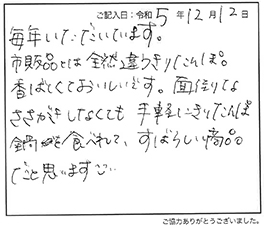 ご記入日:令和5年12月12日
毎年いただいています。
市販品とは全然違うきりたんぽ。
香ばしくておいしいです。面倒な
ささがきしなくても手軽にきりたんぽ
鍋が食べれて、すばらしい商品
だと思います
ご協力ありがとうございました。